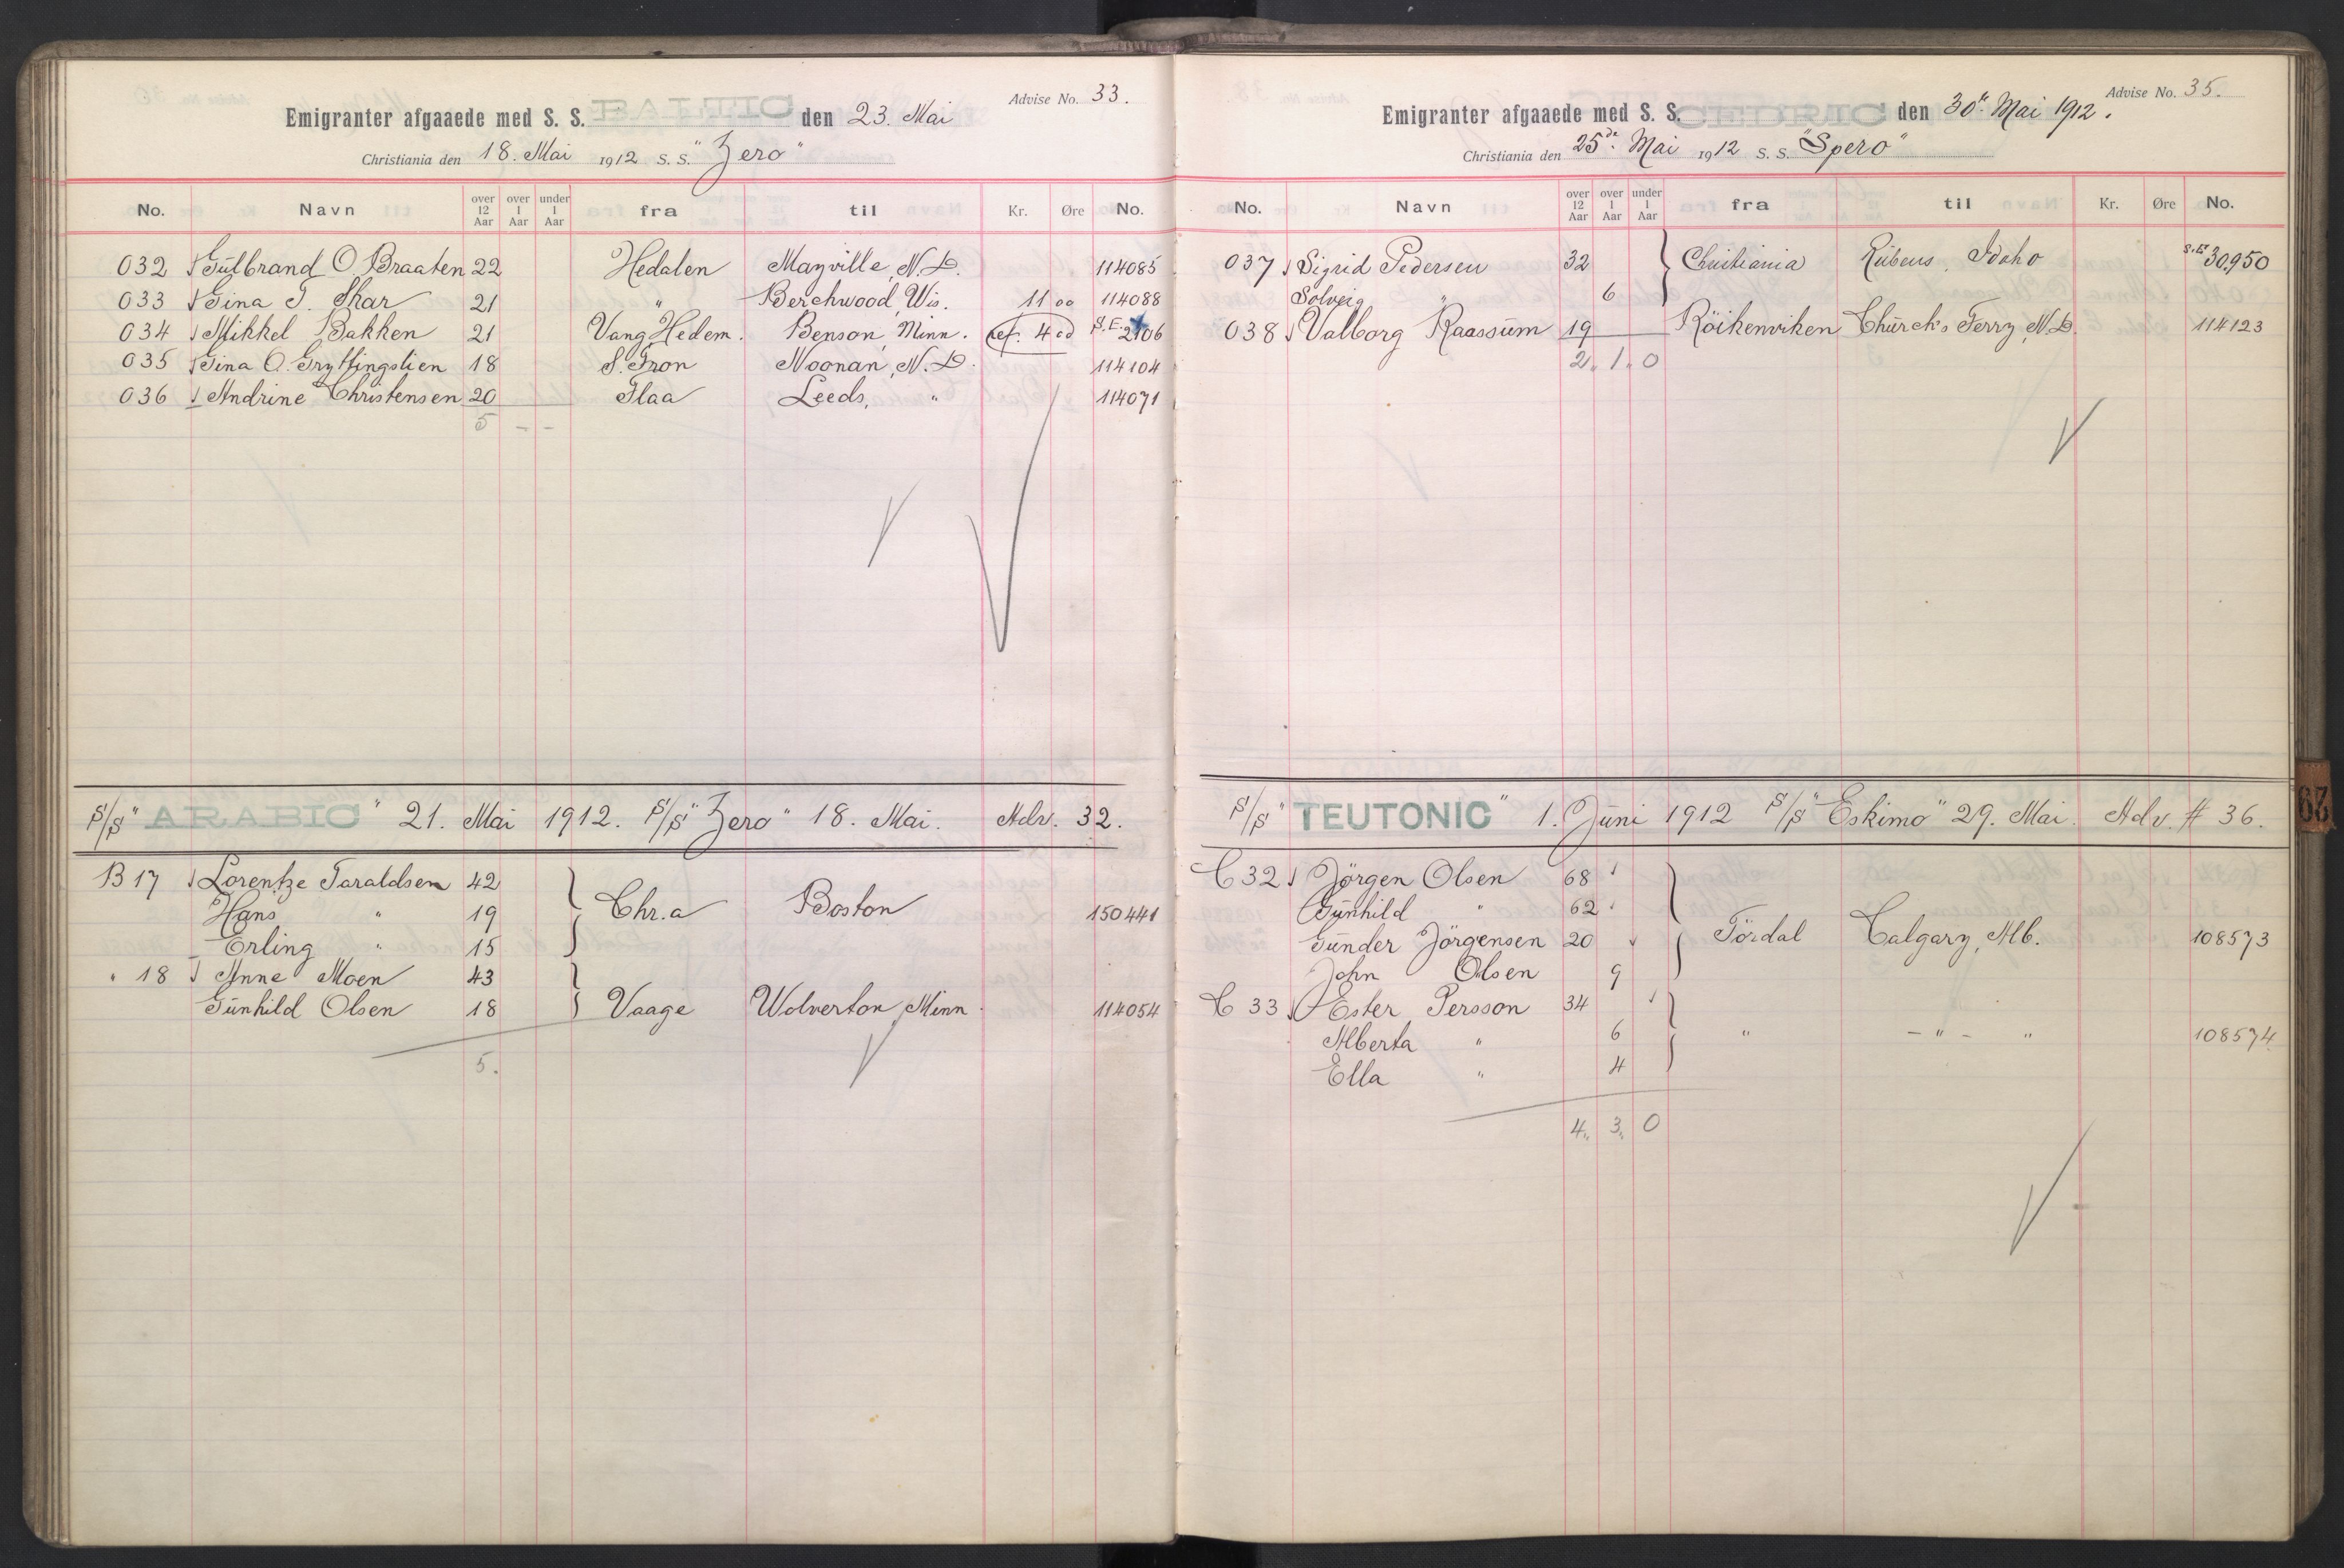 Advise No. 33.
Emigranter afgaaede med S. S. BALTIC den 23. Mai
Christiania den 18. Mai 1912 S. S. "Zero"
No. Navn over 12 Aar over 1 Aar under 1 Aar fra til Kr. Øre No.
032 Gulbrand O. Braaten 22 Hedalen Mayville, N.D. 114085
033 Gina T. Skar 21 " Berchwood, Wis. 11 00 114088
034 Mikkel Bakken 21 Vang, Hedem. Benson, Minn. ref. 4 00 S.E. 2106
035 Gina O. Gryttingslien 18 S. Fron Noonan, N.D. 114104
036 Andrine Christensen 20 Flaa Leeds, " 114071
5 - -
S/S "ARABIC" 21. Mai 1912. S/S "Zero" 18. Mai. Adv. 32.
B 17 Lorentze Taraldsen 42
Hans " 19 Chr.a Boston 150441
Erling " 15
" 18 Anne Moen 43
Gunhild Olsen 18 Vaage Wolverton, Minn. 114054
5.
Advise No. 35.
Emigranter afgaaede med S. S. CEDRIC den 30te Mai 1912.
Christiania den 25de Mai 1912 S. S. "Spero"
No. Navn over 12 Aar over 1 Aar under 1 Aar fra til Kr. Øre No.
037 Sigrid Pedersen 32 Christiania Rubens, Idaho S.E. 30950
Solveig " 6
038 Valborg Raassum 19 Röikenviken Church's Ferry, N.D. 114123
2 " 1 " 0
S/S "TEUTONIC" 1. Juni 1912 S/S "Eskimo" 29. Mai. Adv. # 36.
C 32 Jörgen Olsen 68
Gunhild " 62
Gunder Jörgensen 20 Tördal Calgary, Alb. 108573
John Olsen 9
C 33 Ester Persson 34
Alberta " 6 " - " - " 108574
Ella " 4
4 " 3 " 0